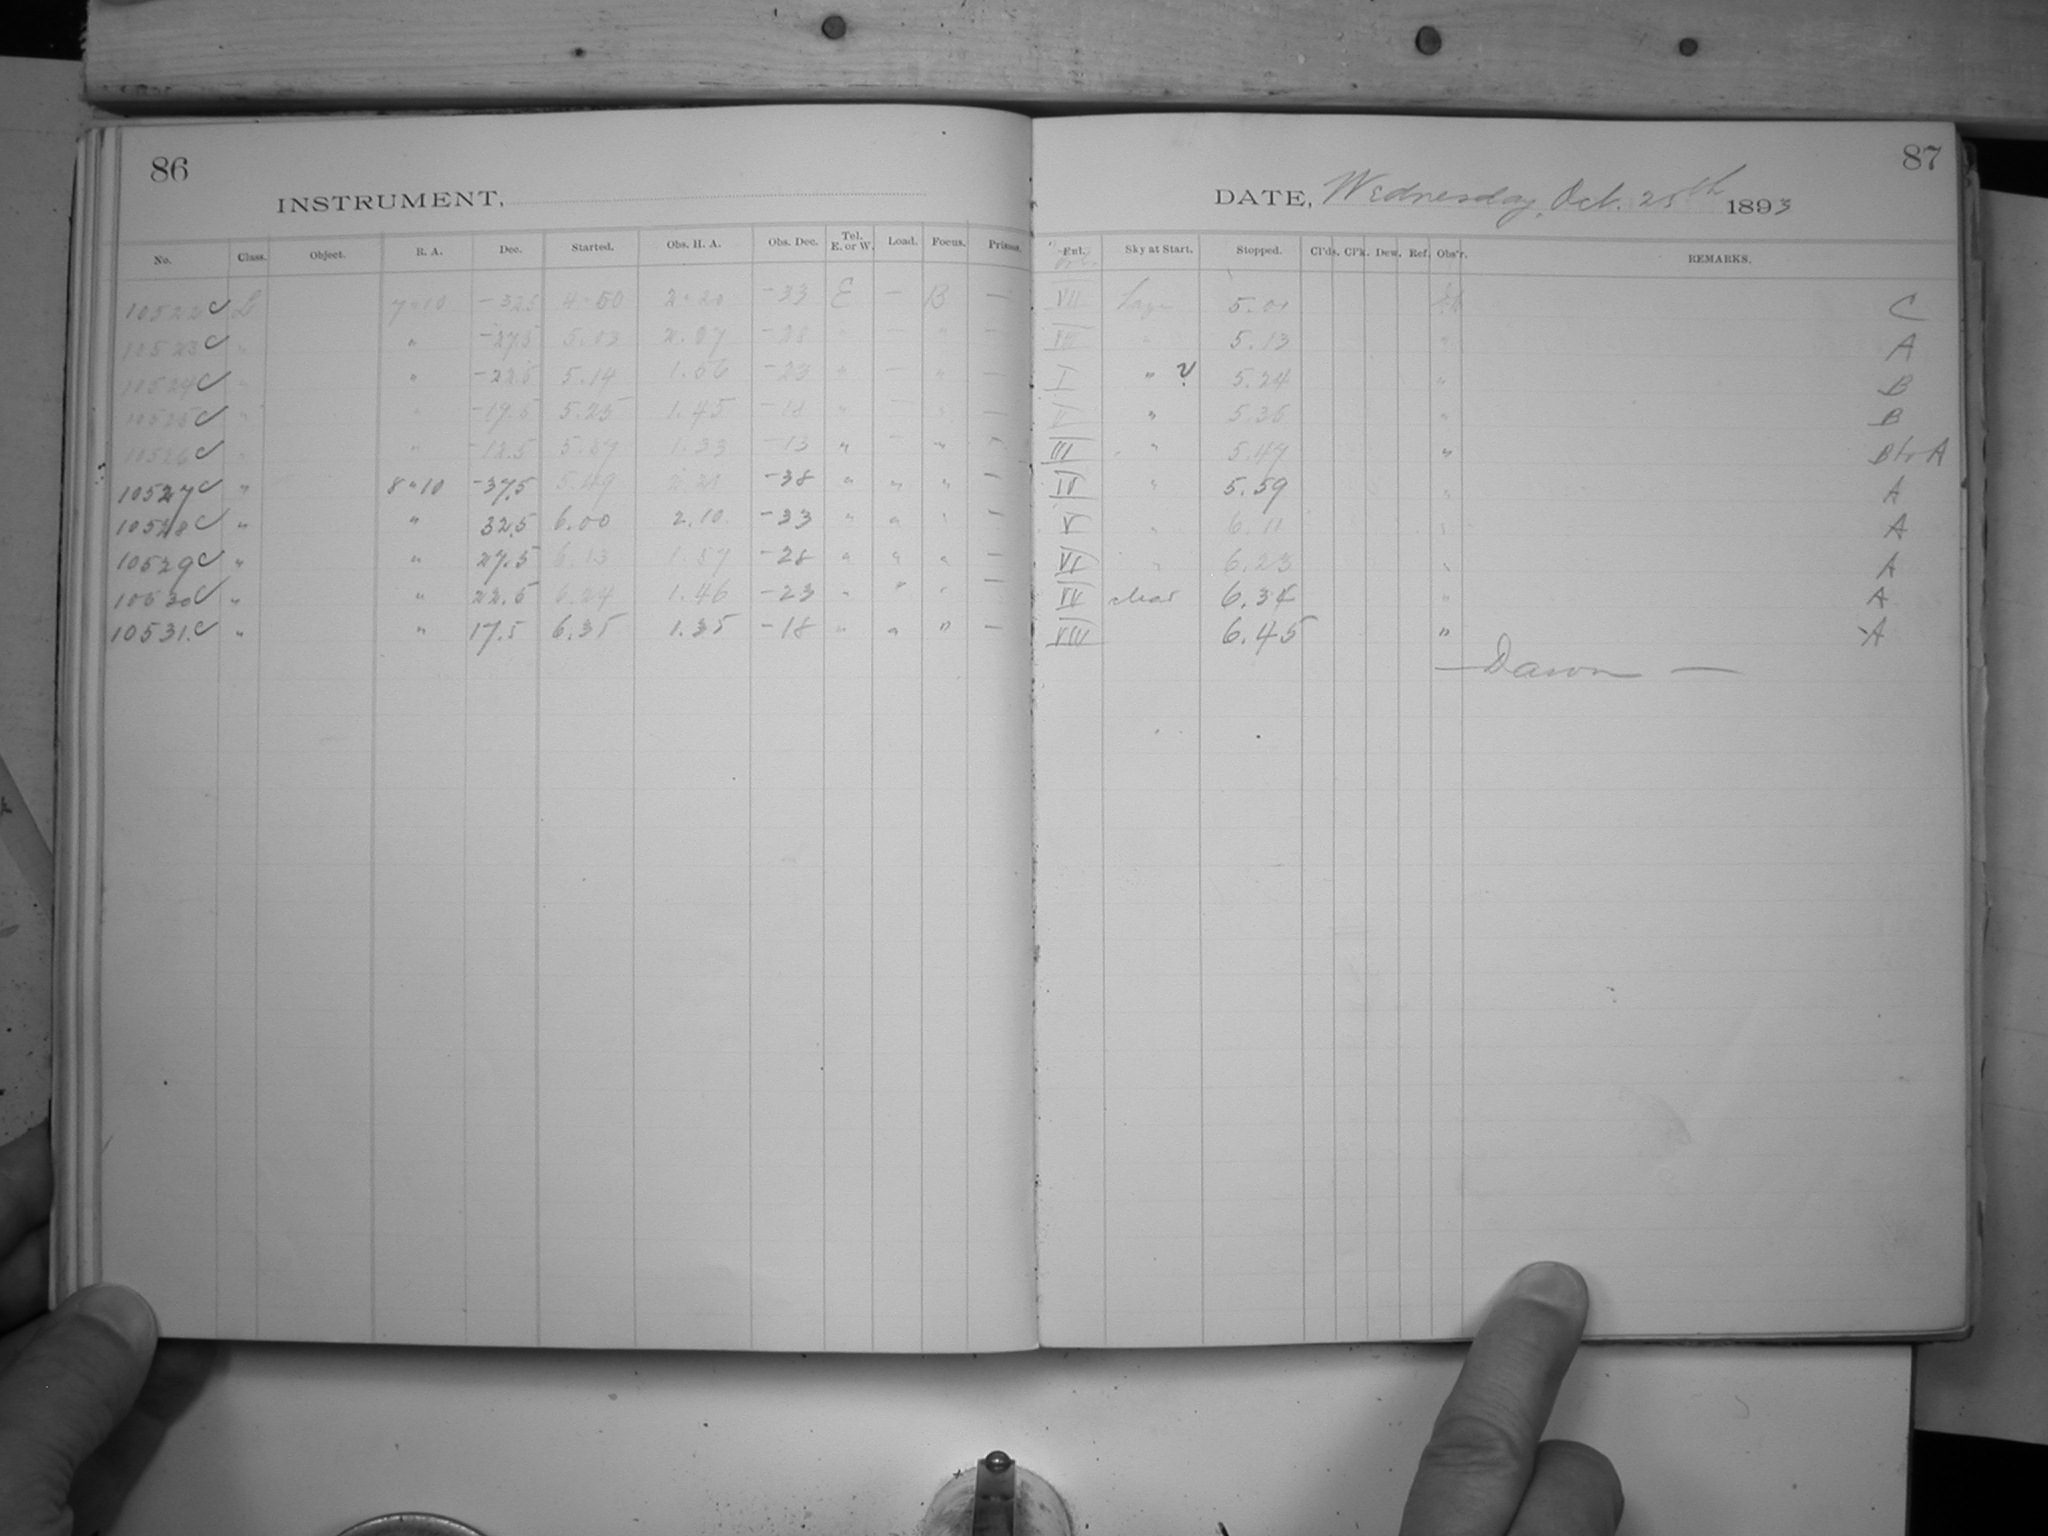 86
INSTRUMENT,
No. Class. Object. R. A. Dec. Started. Obs. H. A. Obs. Dec. Tel. E. or W. Load. Focus. Prisms.
10522 L 7-10 -32.5 4-50 2-20 -33 E — B —
10523 " " -27.5 5.03 2.07 -28 " — " —
10524 " " -22.5 5.14 1.56 -23 " — " —
10525 " " 5.25 1.45 -18 " — " —
10526 " " -12.5 5.37 1.33 -13 " — " "
10527 " 8-10 -37.5 5.49 2.21 -38 " " " —
10528 " " 32.5 6.00 2.10 -33 " " " —
10529 " " 27.5 6.13 1.57 -28 " " " —
10530 " " 22.5 6.24 1.46 -23 " " " —
10531. " " 17.5 6.35 1.35 -18 " " " —
87
DATE, Wednesday, Oct. 25th 1893
Ent. Sky at Start. Stopped. Cl'ds. Cl'k. Dew. Ref. Obs'r. REMARKS.
VII Hazy 5.01 C
VIII " 5.13 " A
I " ? 5.24 " B
II " 5.35 " B
III " 5.47 " B to A
IV " 5.59 " A
V " 6.11 " A
VI " 6.23 " A
VII clear 6.34 " A
VIII 6.45 " A
— Dawn —